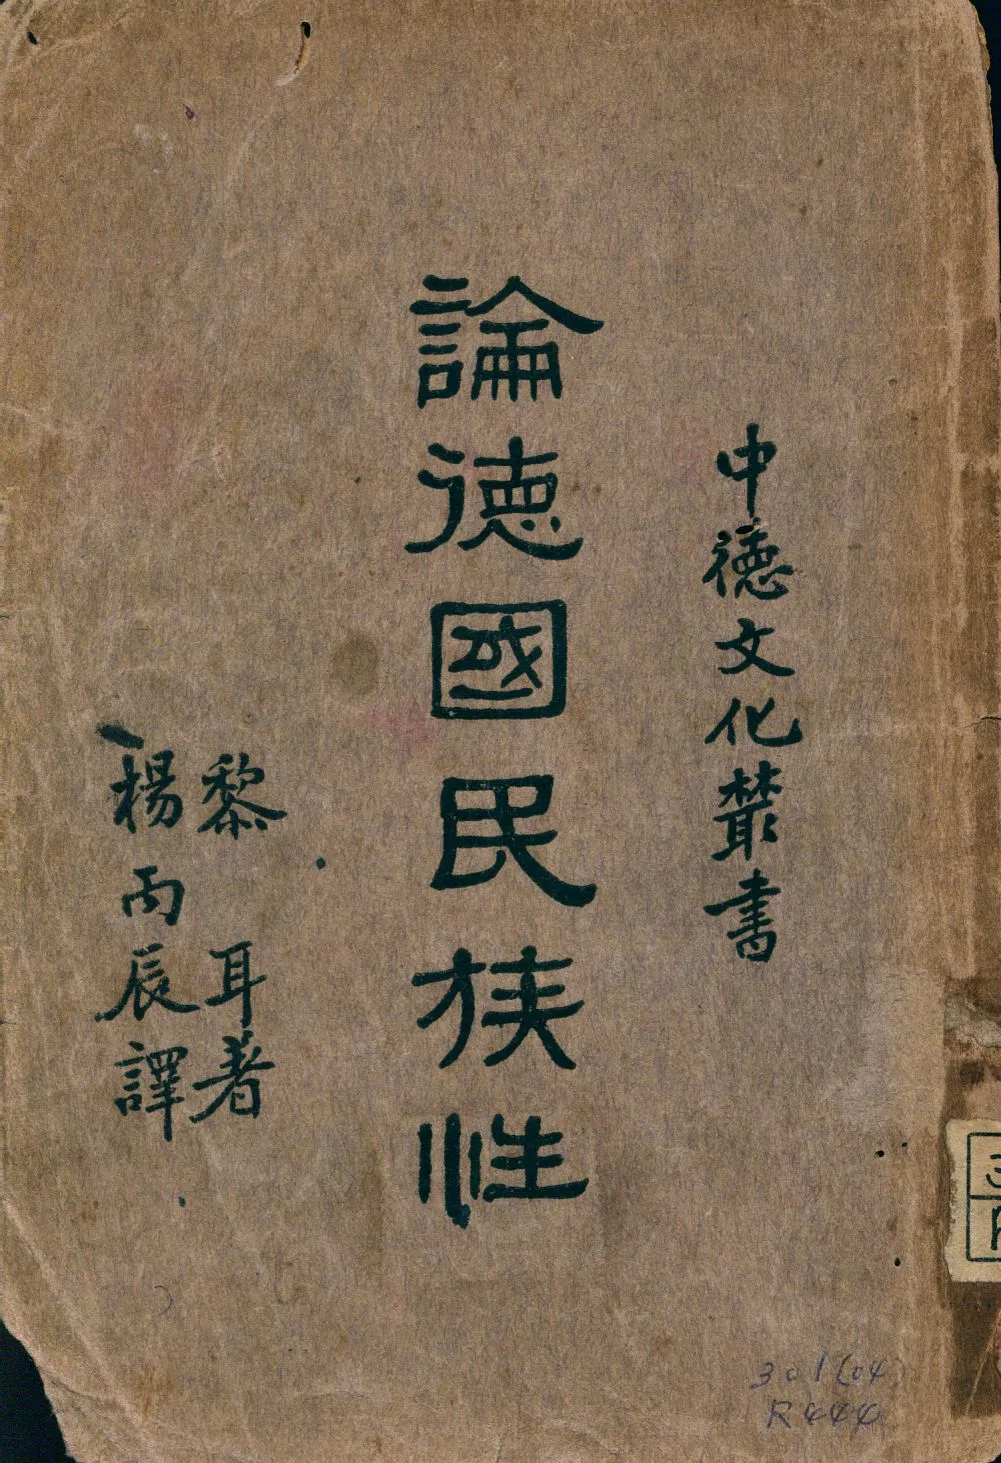 中德文化叢書
論德國民族性
黎耳著
楊丙辰譯
R444